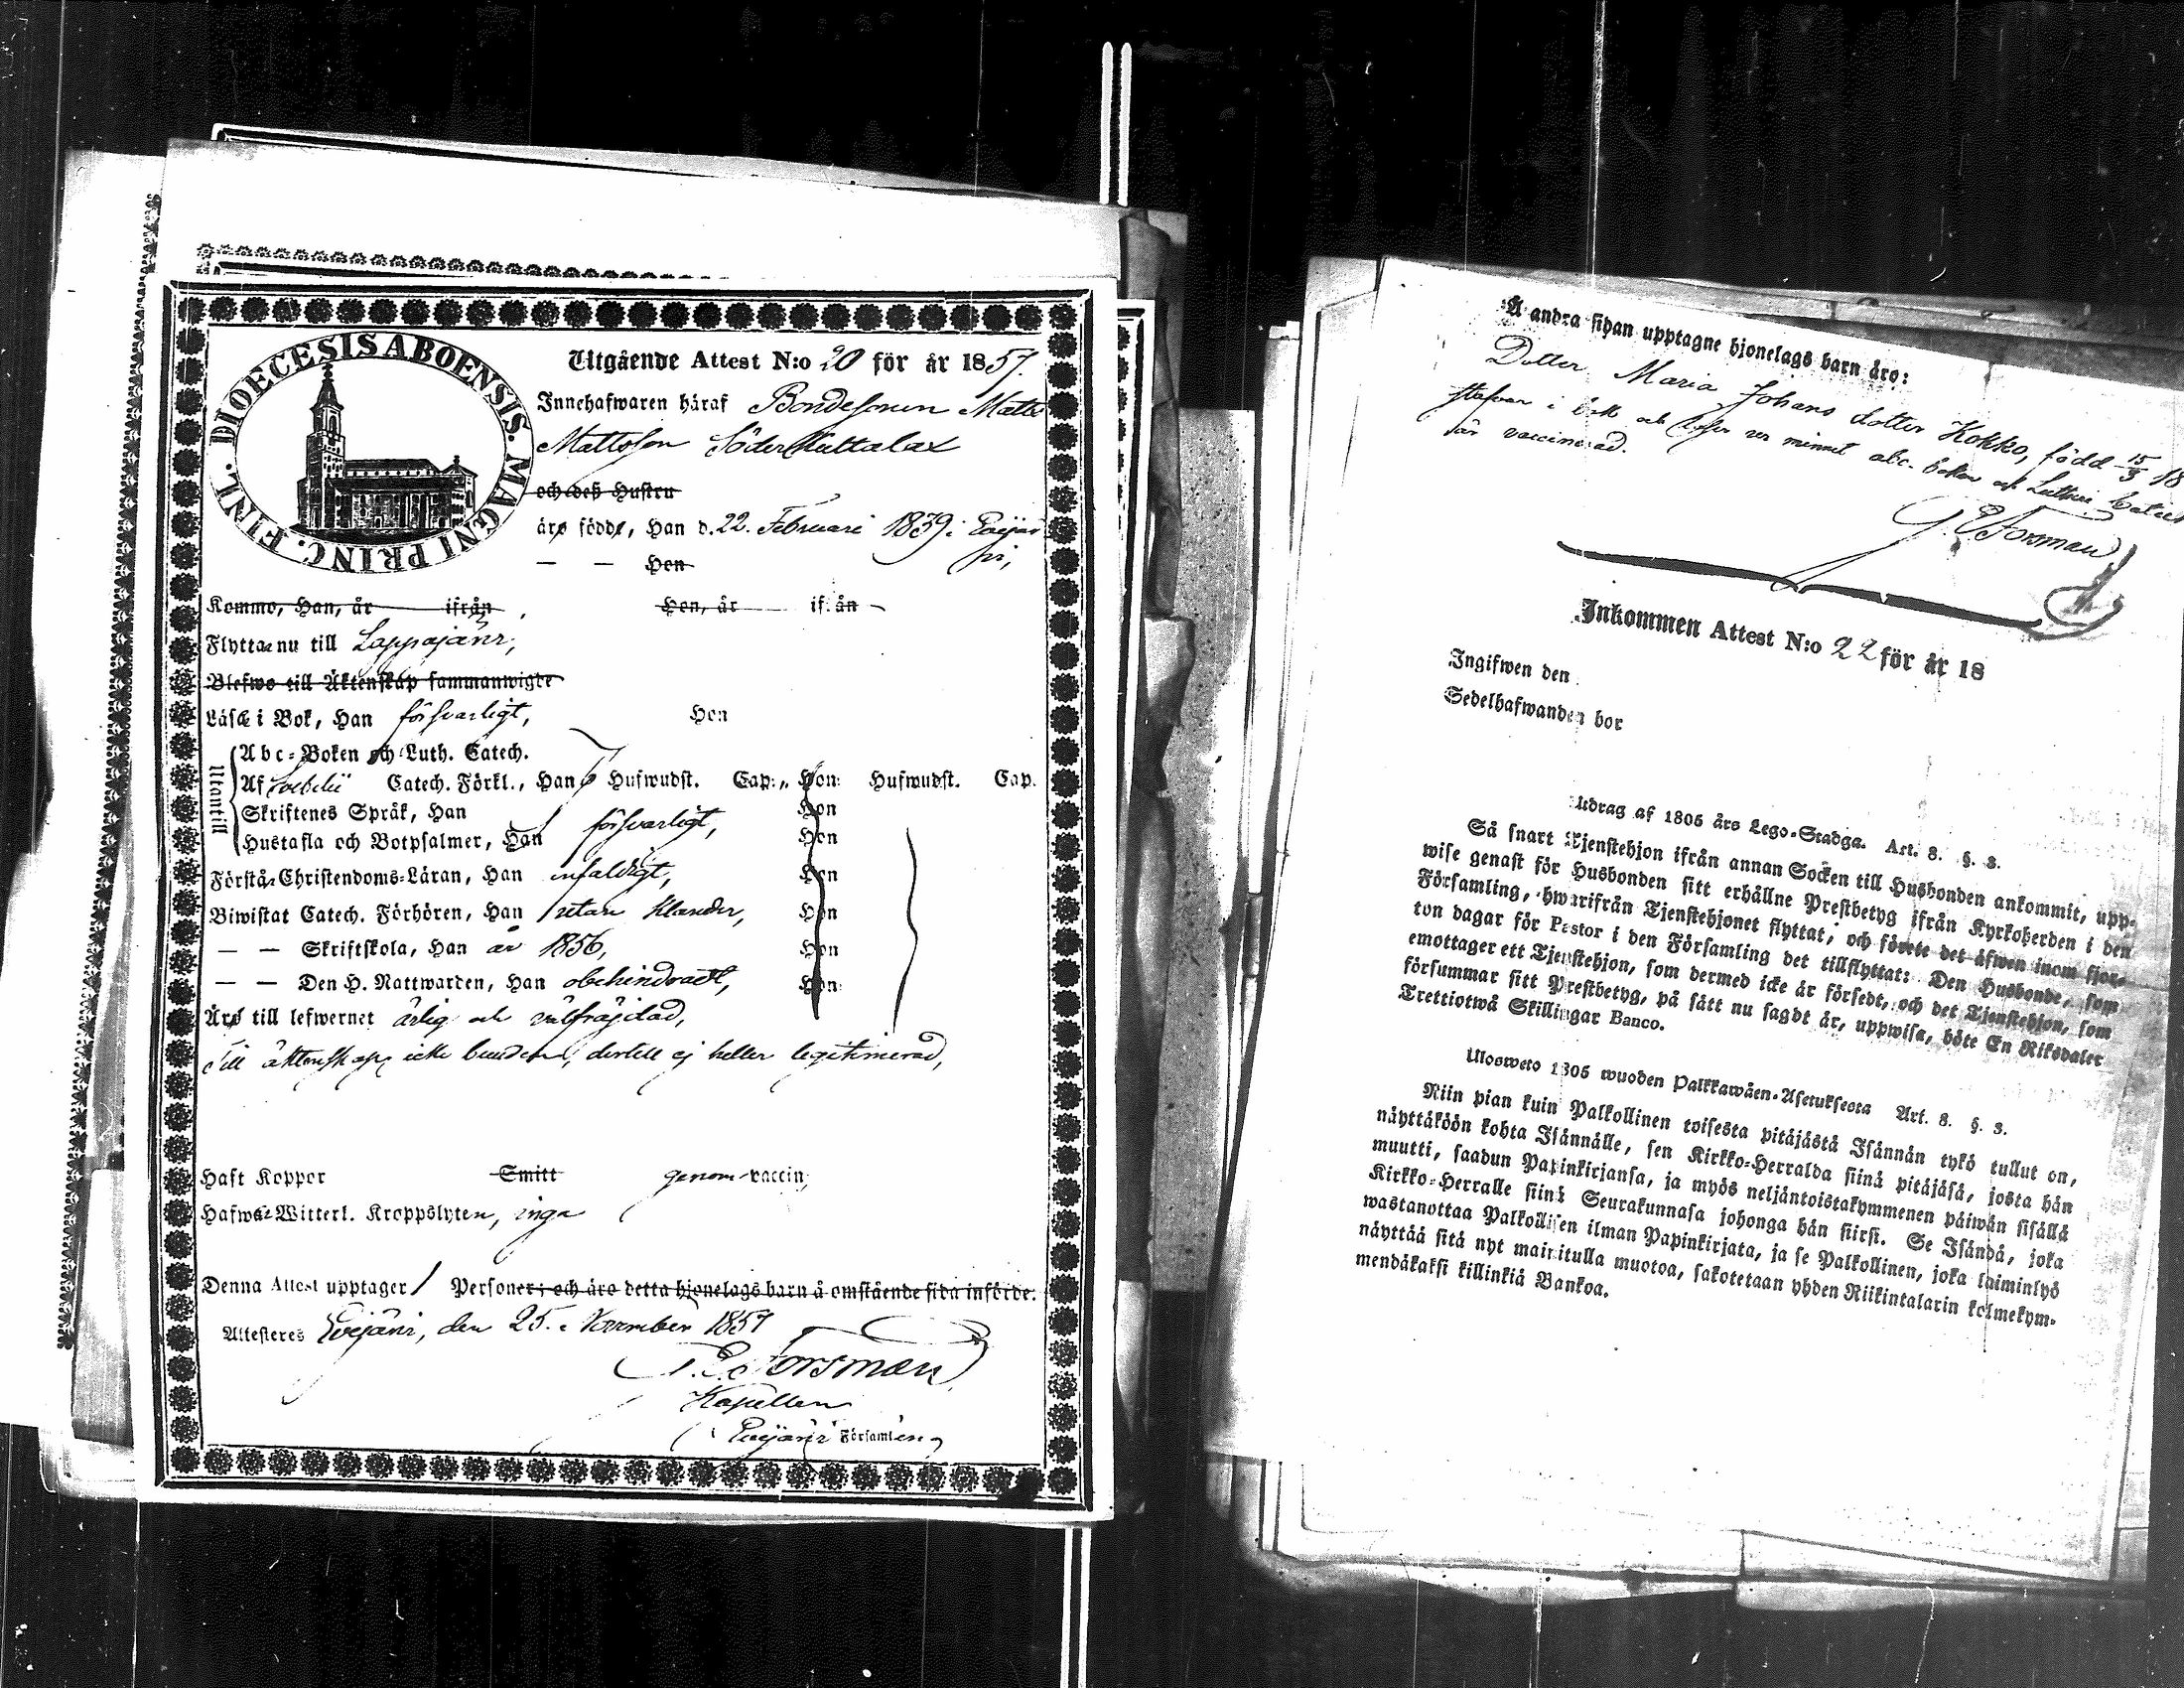 DIOECESIS ABOENSIS. MAGNI PRINC. FINL.
Utgående Attest N:o 20 för år 1857
Innehafwaren häraf Bondesonen Matts
Mattsson Söder
och deß Hustru
äro födde, Han d. 22. Februari 1839 i Evijär
vi,
— — Hon
Kommo, Han, år ifrån Hon, år ifrån
Flytta nu till Lappajärvi,
Blefwo till Äktenskap sammanwigde
Läsa i Bok, Han försvarligt, Hon
Utantill
Abc-Boken och Luth. Catech.
Af Svebilii Catech. Förkl., Han 6 Hufwudst. Cap. „ Hon Hufwudst. Cap.
Skriftenes Språk, Han Hon
Hustafla och Botpsalmer, Han försvarligt, Hon
Förstå Christendoms-Läran, Han enfaldigt, Hon
Biwistat Catech. Förhören, Han utan klander, Hon
— — Skriftskola, Han år 1856, Hon
— — Den H. Nattwarden, Han obehindradt, Hon
Äro till lefwernet ärlig och välfräjdad,
Till äktenskap icke bunden, dertill ej heller legitimerad,
Haft Koppor Smitt genom vaccin,
Hafwa Witterl. Kroppslyten, inga
Denna Attest upptager 1 Personer; och äro detta hjonelags barn å omstående sida införde.
Attesteres Evijärvi, den 25. November 1857
Forsman
Kapellan
i Evijärvi Församling
Å andra sidan upptagne hjonelags barn äro:
Dotter Maria Johans dotter Kokko, född 15/3 18
stafvar i bok och läser ur minnet abc-boken och Lutheri
är vaccinerad.
Forsman
Inkommen Attest N:o 22 för år 18
Ingifwen den
Sedelhafwanden bor
Utdrag af 1805 års Lego-Stadga. Art. 8. §. 3.
Så snart Tjenstehjon ifrån annan Socken till Husbonden ankommit, upp-
wise genast för Husbonden sitt erhållne Prestbetyg ifrån Kyrkoherden i den
Församling, hwarifrån Tjenstehjonet flyttat; och förete det äfwen inom fjor-
ton dagar för Pastor i den Församling det tillflyttat: Den Husbonde, som
emottager ett Tjenstehjon, som dermed icke är försedt, och det Tjenstehjon, som
försummar sitt Prestbetyg, på sätt nu sagdt är, uppwisa, böte En Riksdaler
Trettiotwå Skillingar Banco.
Ulosweto 1805 wuoden Palkkawäen-Asetuksesta Art. 8. §. 3.
Niin pian kuin Palkollinen toisesta pitäjästä Isännän tykö tullut on,
näyttäköön kohta Isännälle, sen Kirkko-Herralda siinä pitäjäsä, josta hän
muutti, saadun Papinkirjansa, ja myös neljäntoistakymmenen päiwän sisällä
Kirkko-Herralle siinä Seurakunnasa johonga hän siirsi. Se Isändä, joka
wastanottaa Palkollisen ilman Papinkirjata, ja se Palkollinen, joka laiminlyö
näyttää sitä nyt mainitulla muotoa, sakotetaan yhden Riikintalarin kolmekym-
mendäkaksi killinkiä Bankoa.